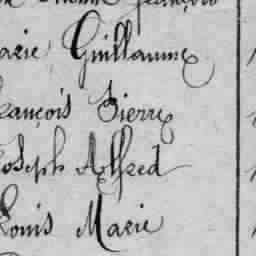 arie Guillaume
rançois Pierre
oseph Alfred
Louis Marie